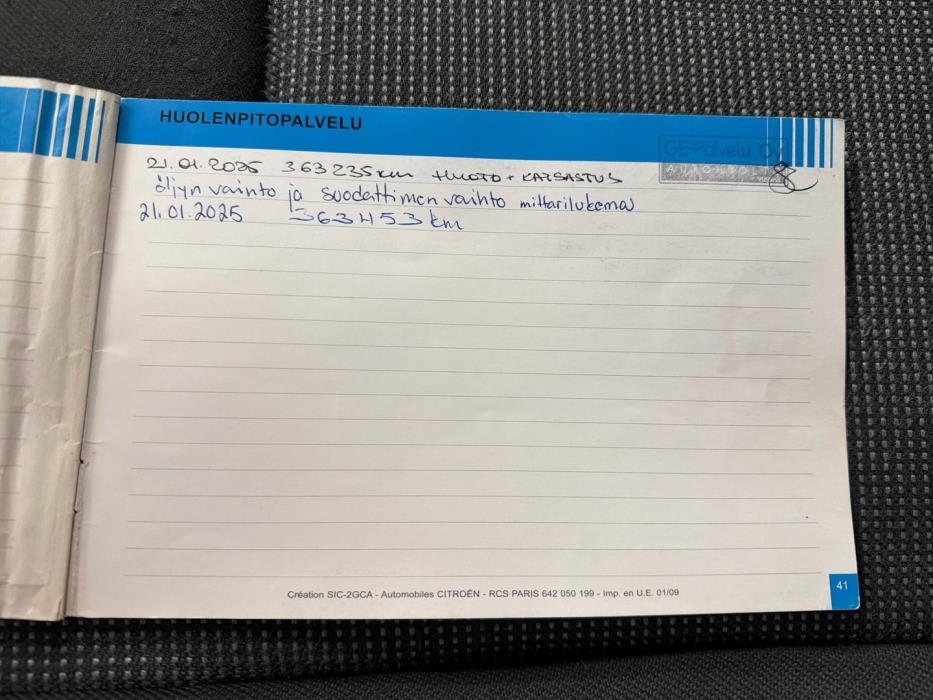 HUOLENPITOPALVELU
GE-Palvelu Oy
21.01.2025 363235km HUOTO + KATSASTUS
öljyn vainto ja suodattimen vaihto mittarilukema
21.01.2025 363453 km
Création SIC-2GCA - Automobiles CITROËN - RCS PARIS 642 050 199 - Imp. en U.E. 01/09
41